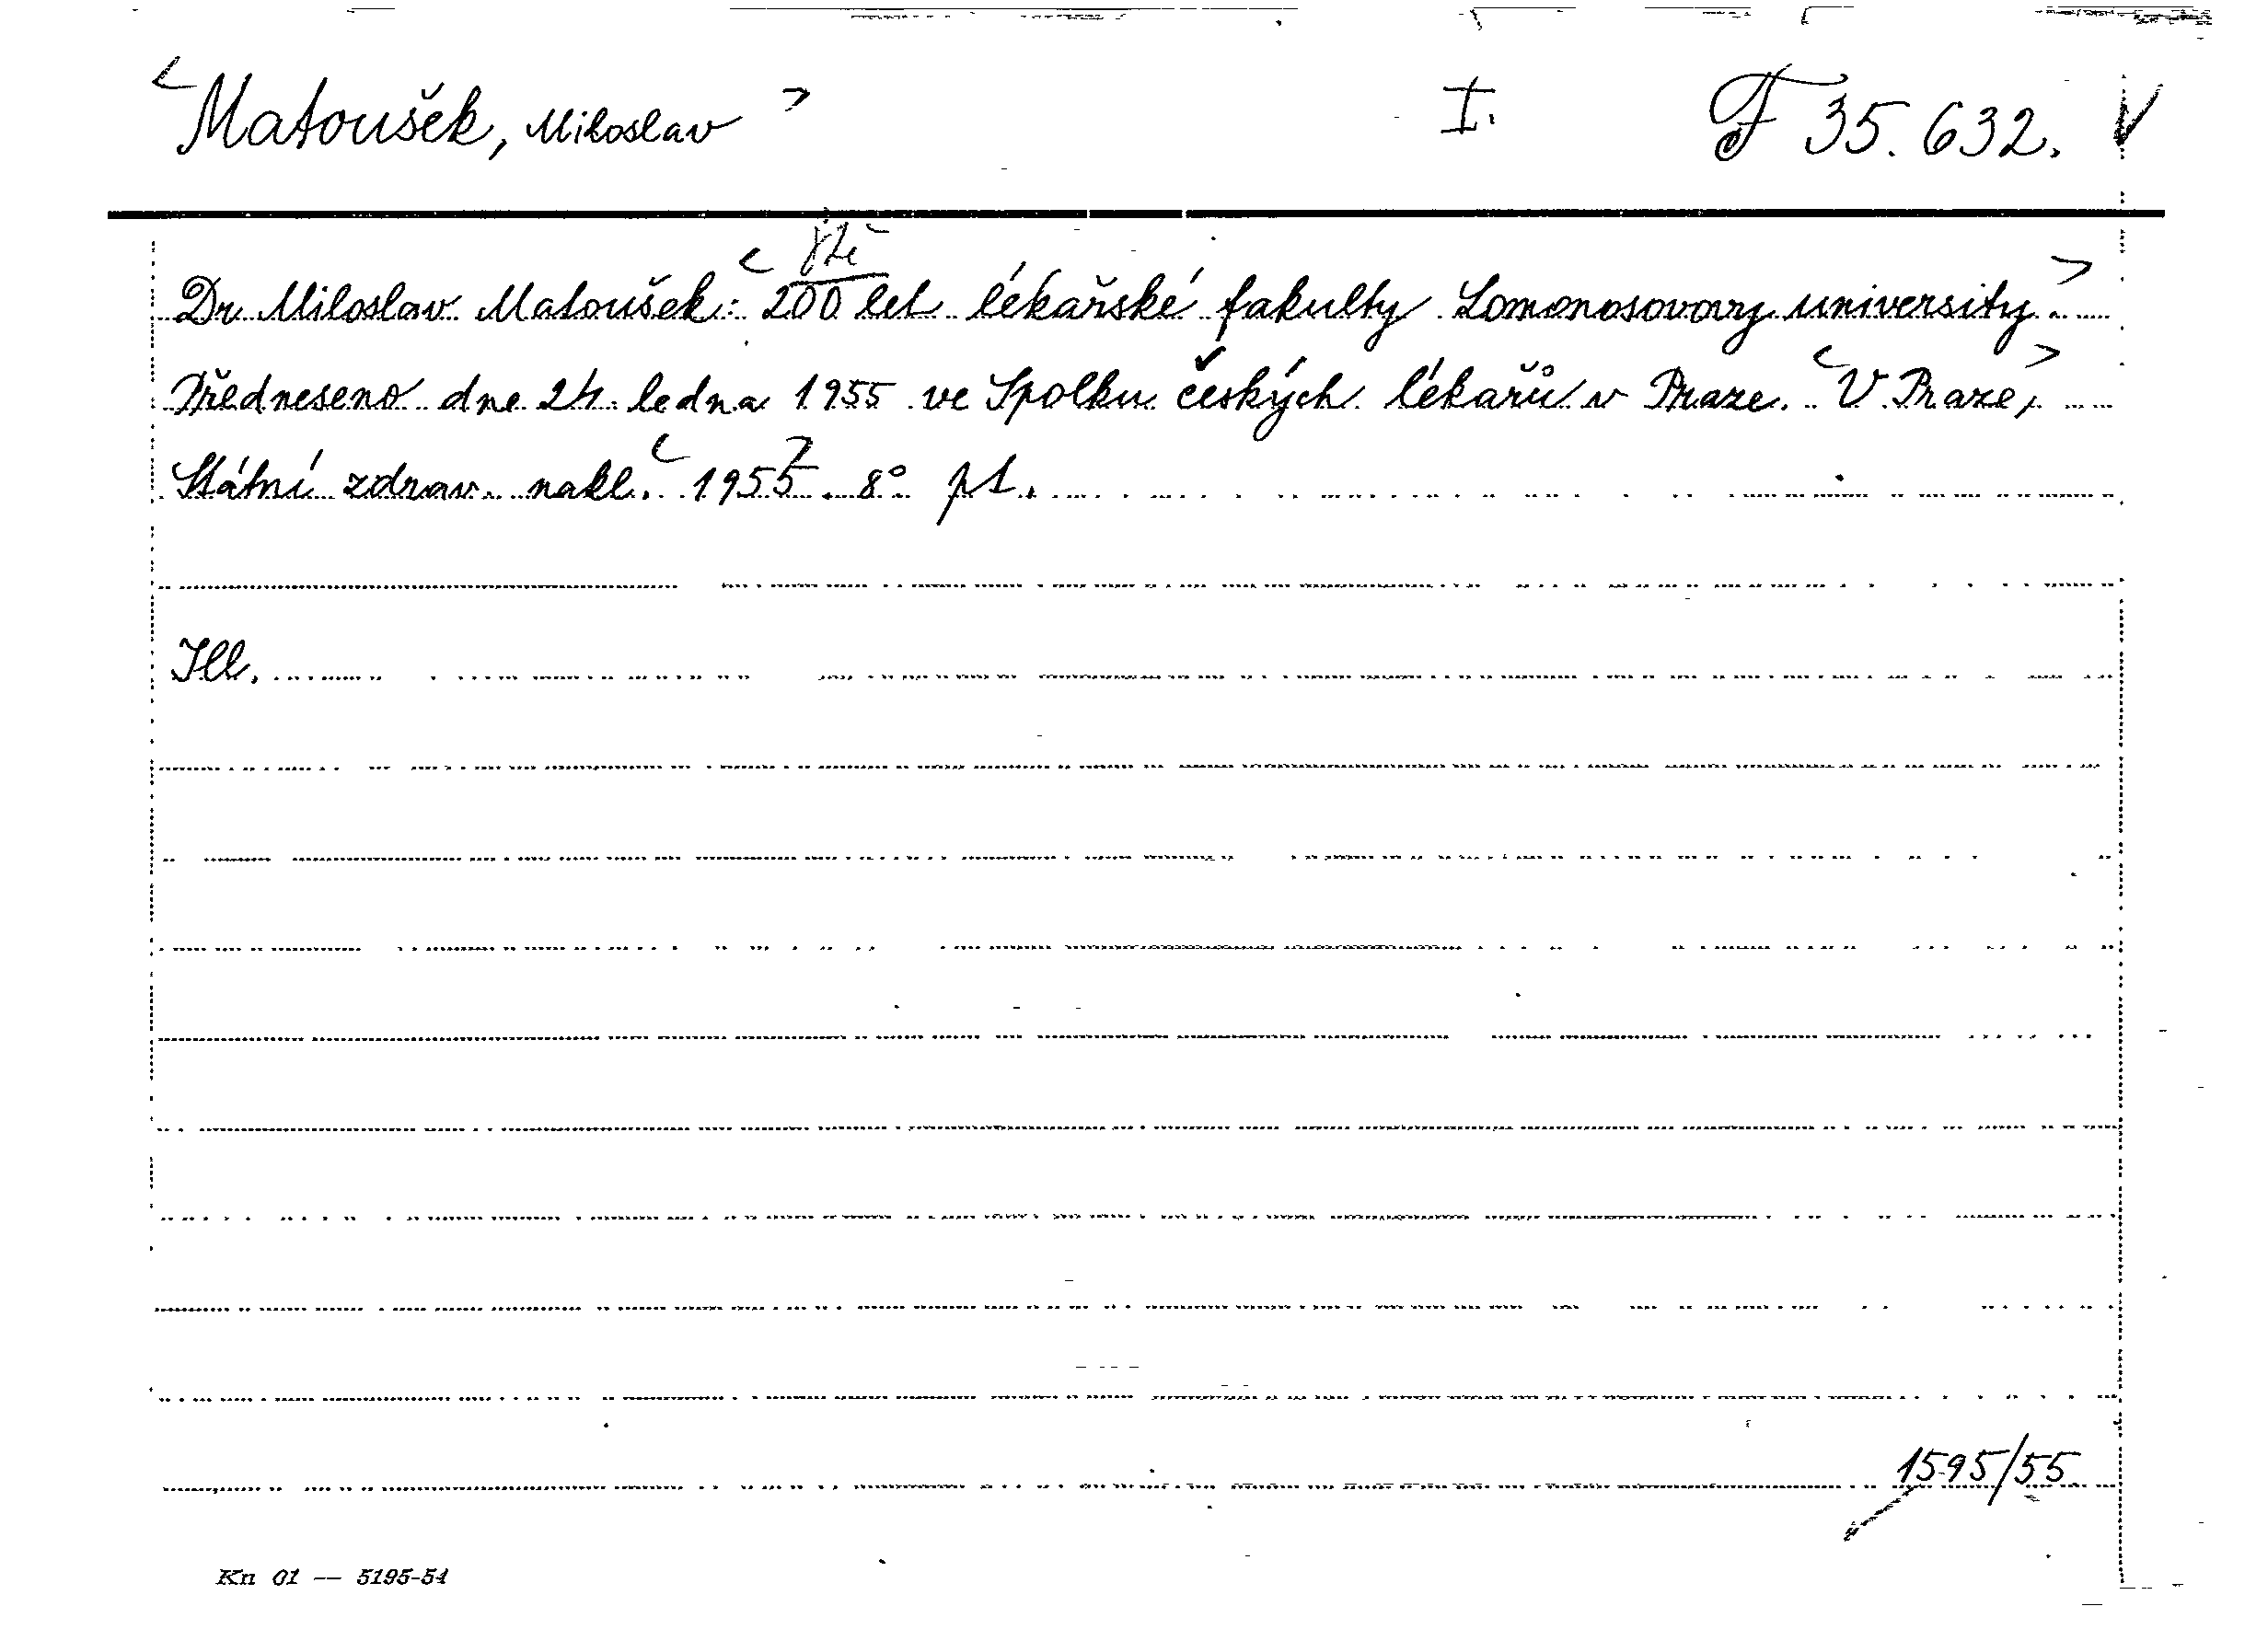 <Matoušek, Miloslav> I. F 35.632. V
Dr Miloslav Matoušek: <200 let lékařské fakulty Lomonosovovy university.>
Předneseno dne 24. ledna 1955 ve Spolku českých lékařů v Praze. <V Praze,>
Státní zdrav. nakl. <1955>. 8° pt.
Ill.
1595/55
Kn 01 — 5195-54